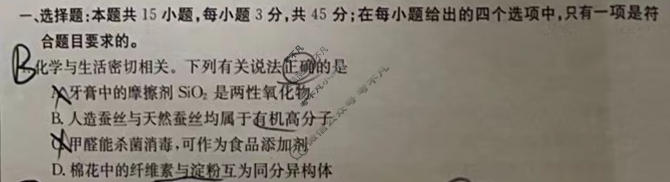 一、选择题:本题共 15 小题,每小题 3 分,共 45 分;在每小题给出的四个选项中,只有一项是符
合题目要求的。
B 化学与生活密切相关。下列有关说法正确的是
A. 牙膏中的摩擦剂 SiO₂ 是两性氧化物
B. 人造蚕丝与天然蚕丝均属于有机高分子
C. 甲醛能杀菌消毒,可作为食品添加剂
D. 棉花中的纤维素与淀粉互为同分异构体